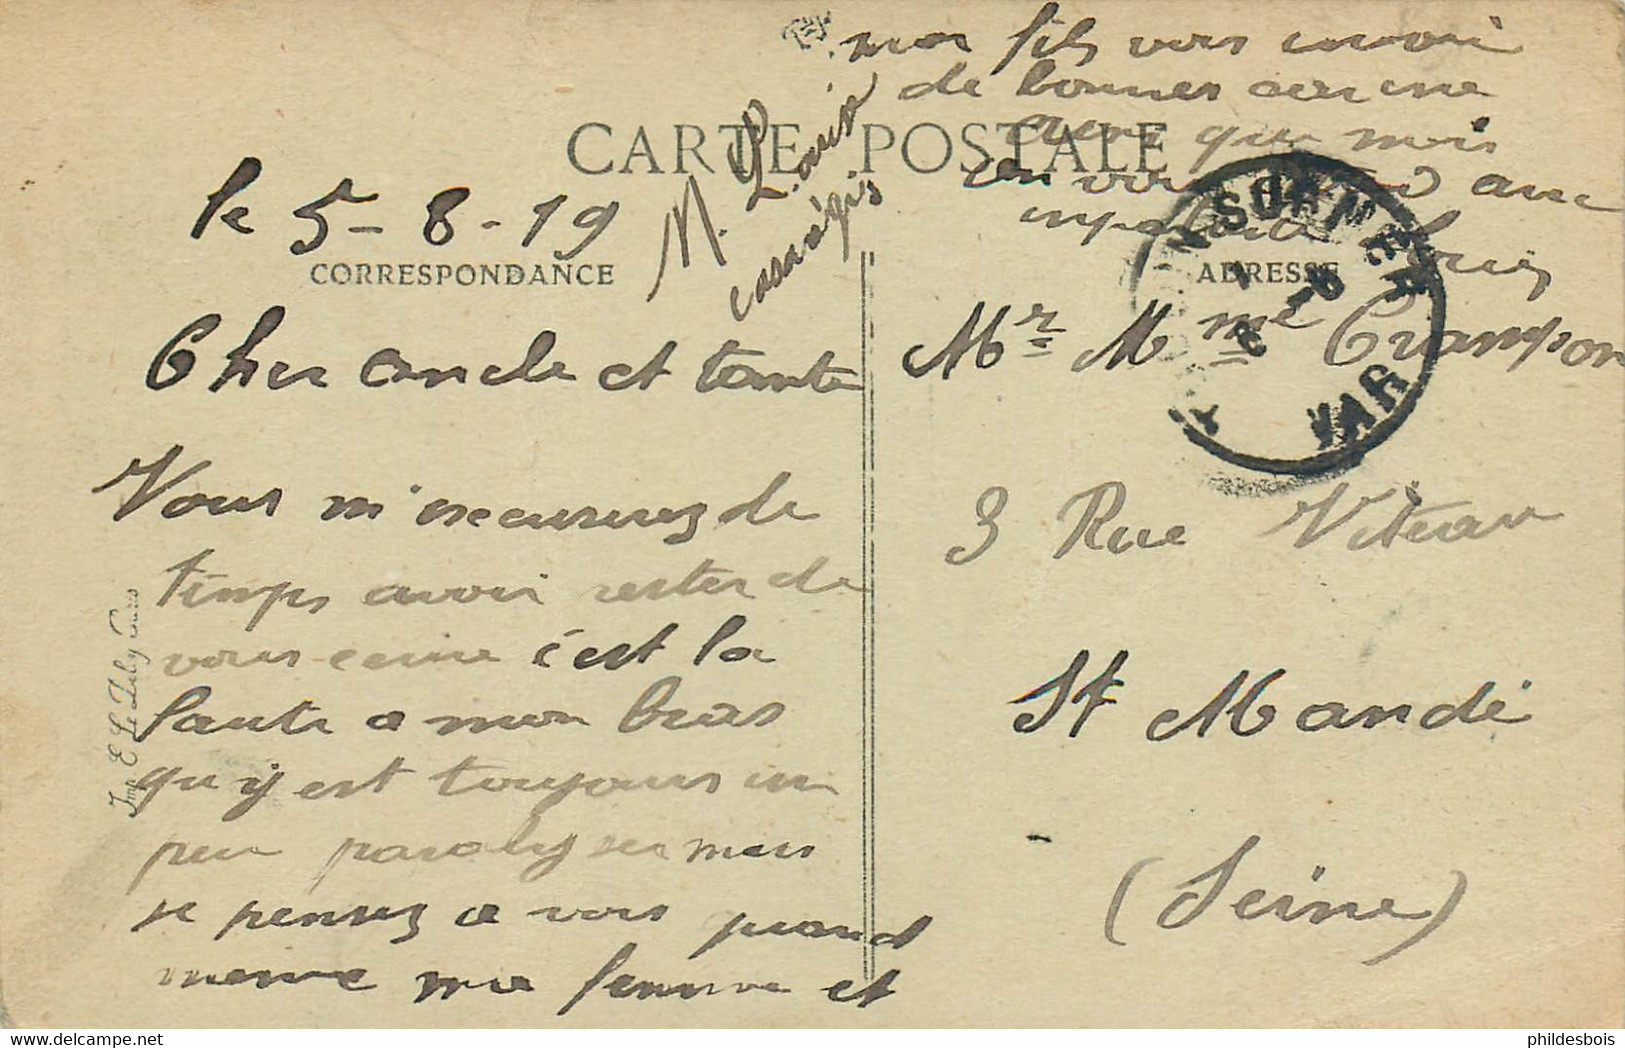 CARTE POSTALE
le 5-8-19
CORRESPONDANCE
Cher oncle et tante
Vous m'excuserez de
temps avoir rester de
vous c'est la
faute a mon bras
qu'y est toujours un
peu paralyser mais
je pensez a vous quand
meme ma femme et
mon fils vous envoie
de bonnes
que mois
en avec
Louis
M. Louis
ADRESSE
Mr Mme Crampon
3 Rue Viteau
St Mandé
(Seine)
SUR MER
VAR
Imp. E. Le Deley Paris
phildesbois